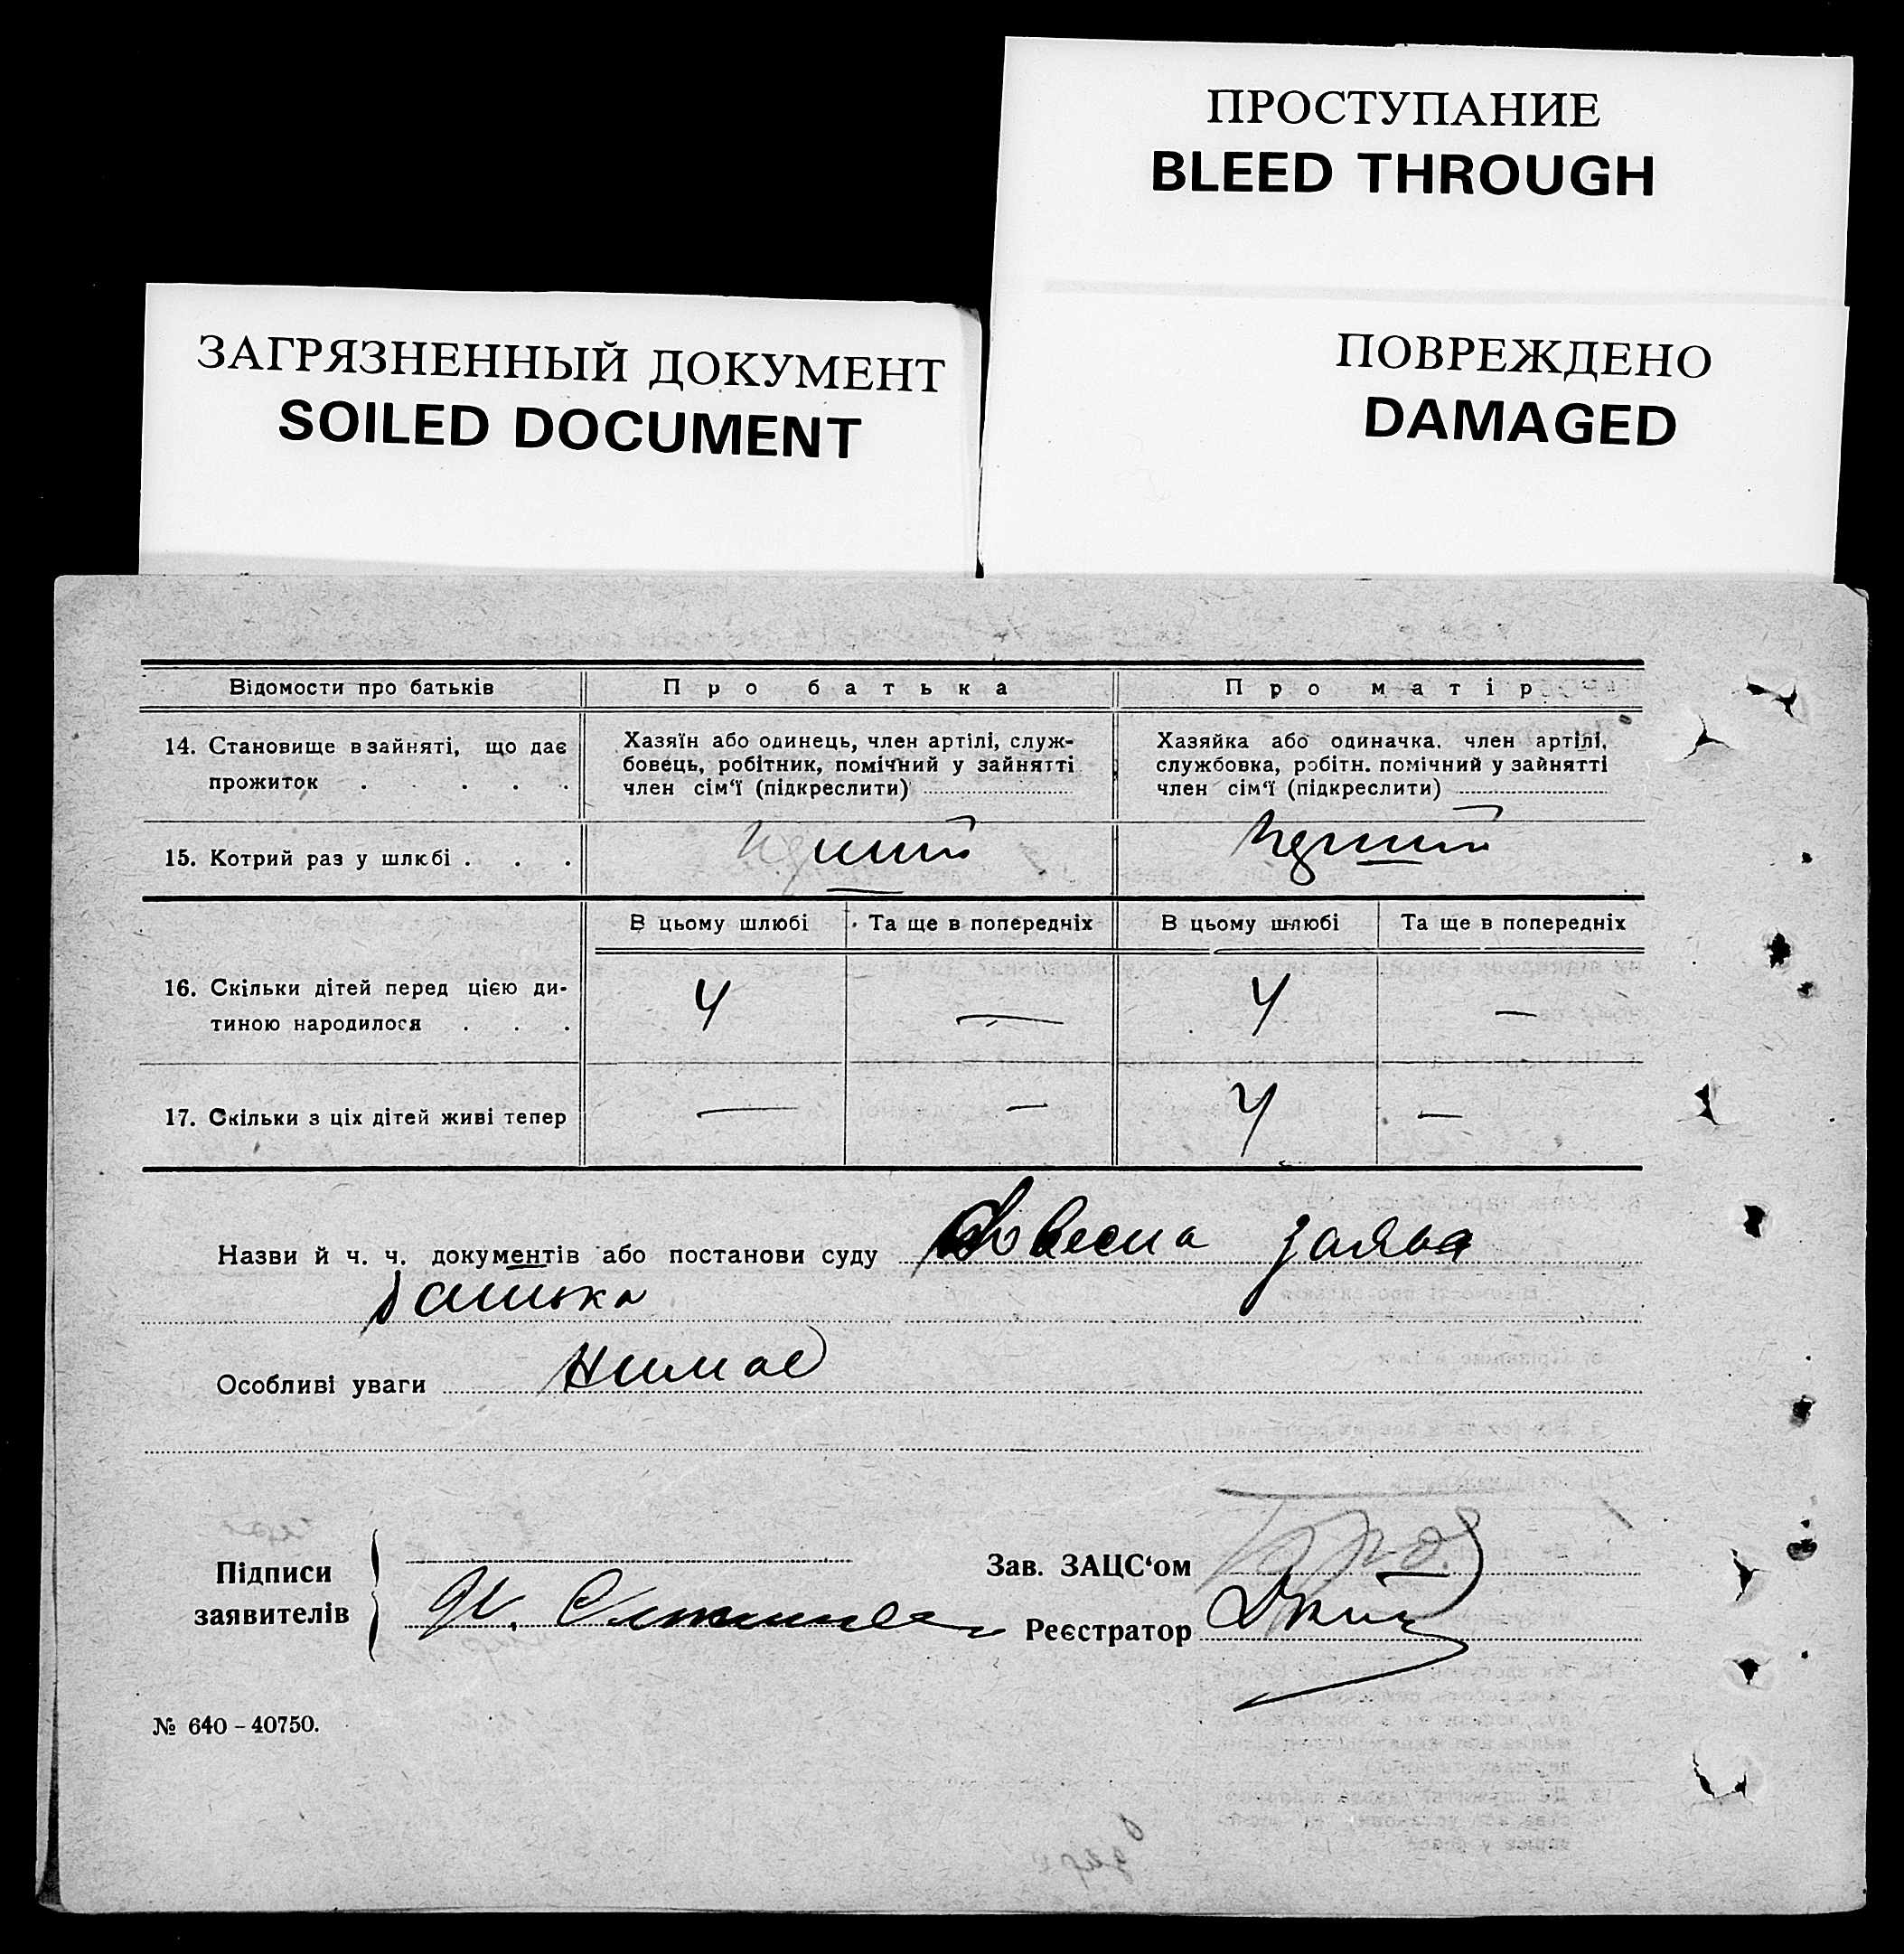 ПРОСТУПАНИЕ
BLEED THROUGH
ЗАГРЯЗНЕННЫЙ ДОКУМЕНТ
SOILED DOCUMENT
ПОВРЕЖДЕНО
DAMAGED
Відомости про батьків
Про батька
Про матір
14. Становище в зайняті, що дає
прожиток . . . . .
Хазяїн або одинець, член артілі, служ-
бовець, робітник, помічний у зайнятті
член сім‘ї (підкреслити)
Хазяйка або одиначка, член артілі,
службовка, робітн. помічний у зайнятті
член сім‘ї (підкреслити)
15. Котрий раз у шлюбі . . .
В цьому шлюбі
Та ще в попередніх
В цьому шлюбі
Та ще в попередніх
16. Скільки дітей перед цією ди-
тиною народилося . . .
4
—
4
—
17. Скільки з ціх дітей живі тепер
—
—
4
—
Назви й ч. ч. документів або постанови суду Словесна заява
батька
Особливі уваги Нимає
Підписи
заявителів
Зав. ЗАЦС‘ом
Реєстратор
№ 640 – 40750.